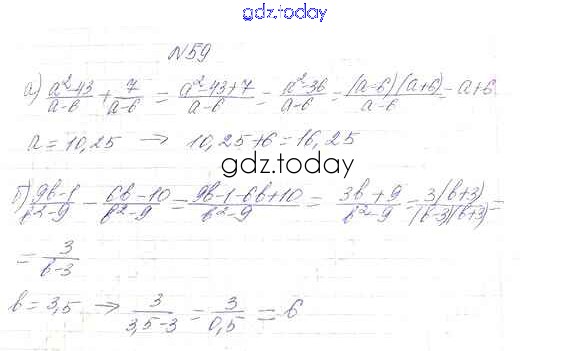 gdz.today
N59
а) (a²-43)/(a-6) + 7/(a-6) = (a²-43+7)/(a-6) = (a²-36)/(a-6) = ((a-6)(a+6))/(a-6) = a+6
a = 10,25 → 10,25+6 = 16,25
gdz.today
б) (9b-1)/(b²-9) - (6b-10)/(b²-9) = (9b-1-6b+10)/(b²-9) = (3b+9)/(b²-9) = 3(b+3)/((b-3)(b+3)) =
= 3/(b-3)
b = 3,5 → 3/(3,5-3) = 3/0,5 = 6